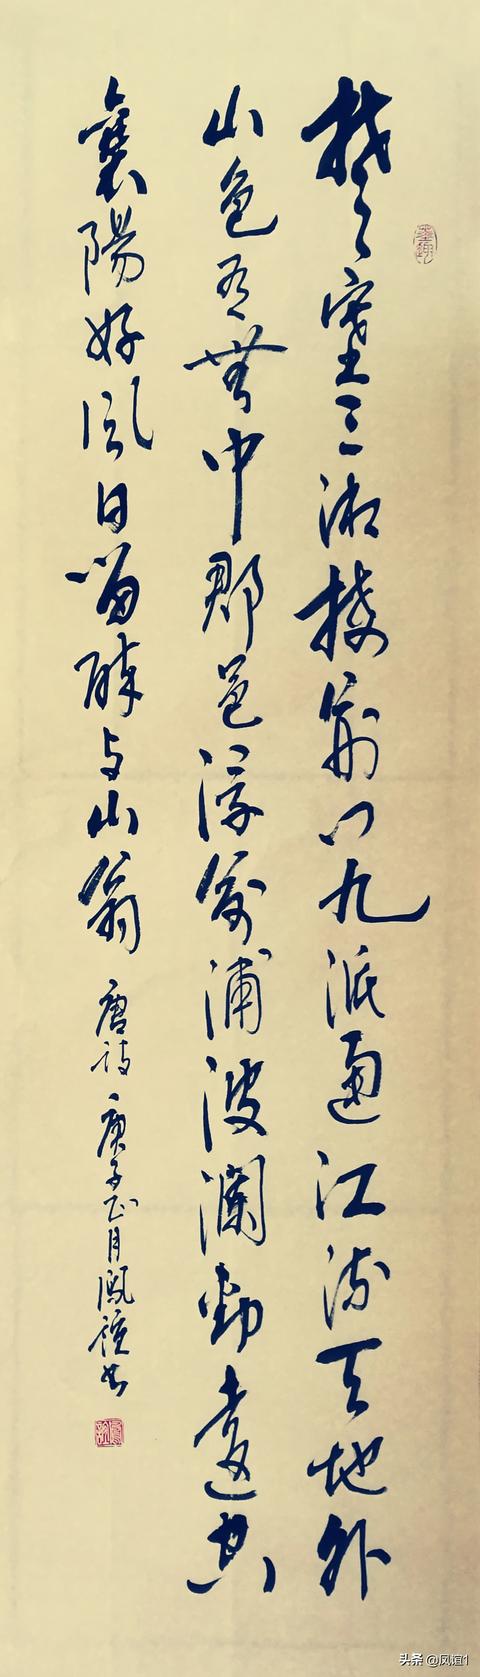 楚塞三湘接荆门九派通江流天地外
山色有無中郡邑浮前浦波瀾動遠空
襄陽好風日留醉与山翁 唐詩 庚子正月鳳誼书
头条 @凤谊1